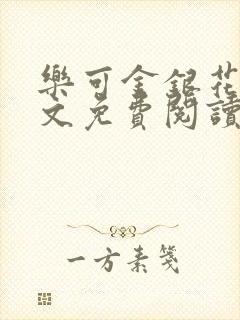 樂可金銀花
文免費閱讀
一方素箋